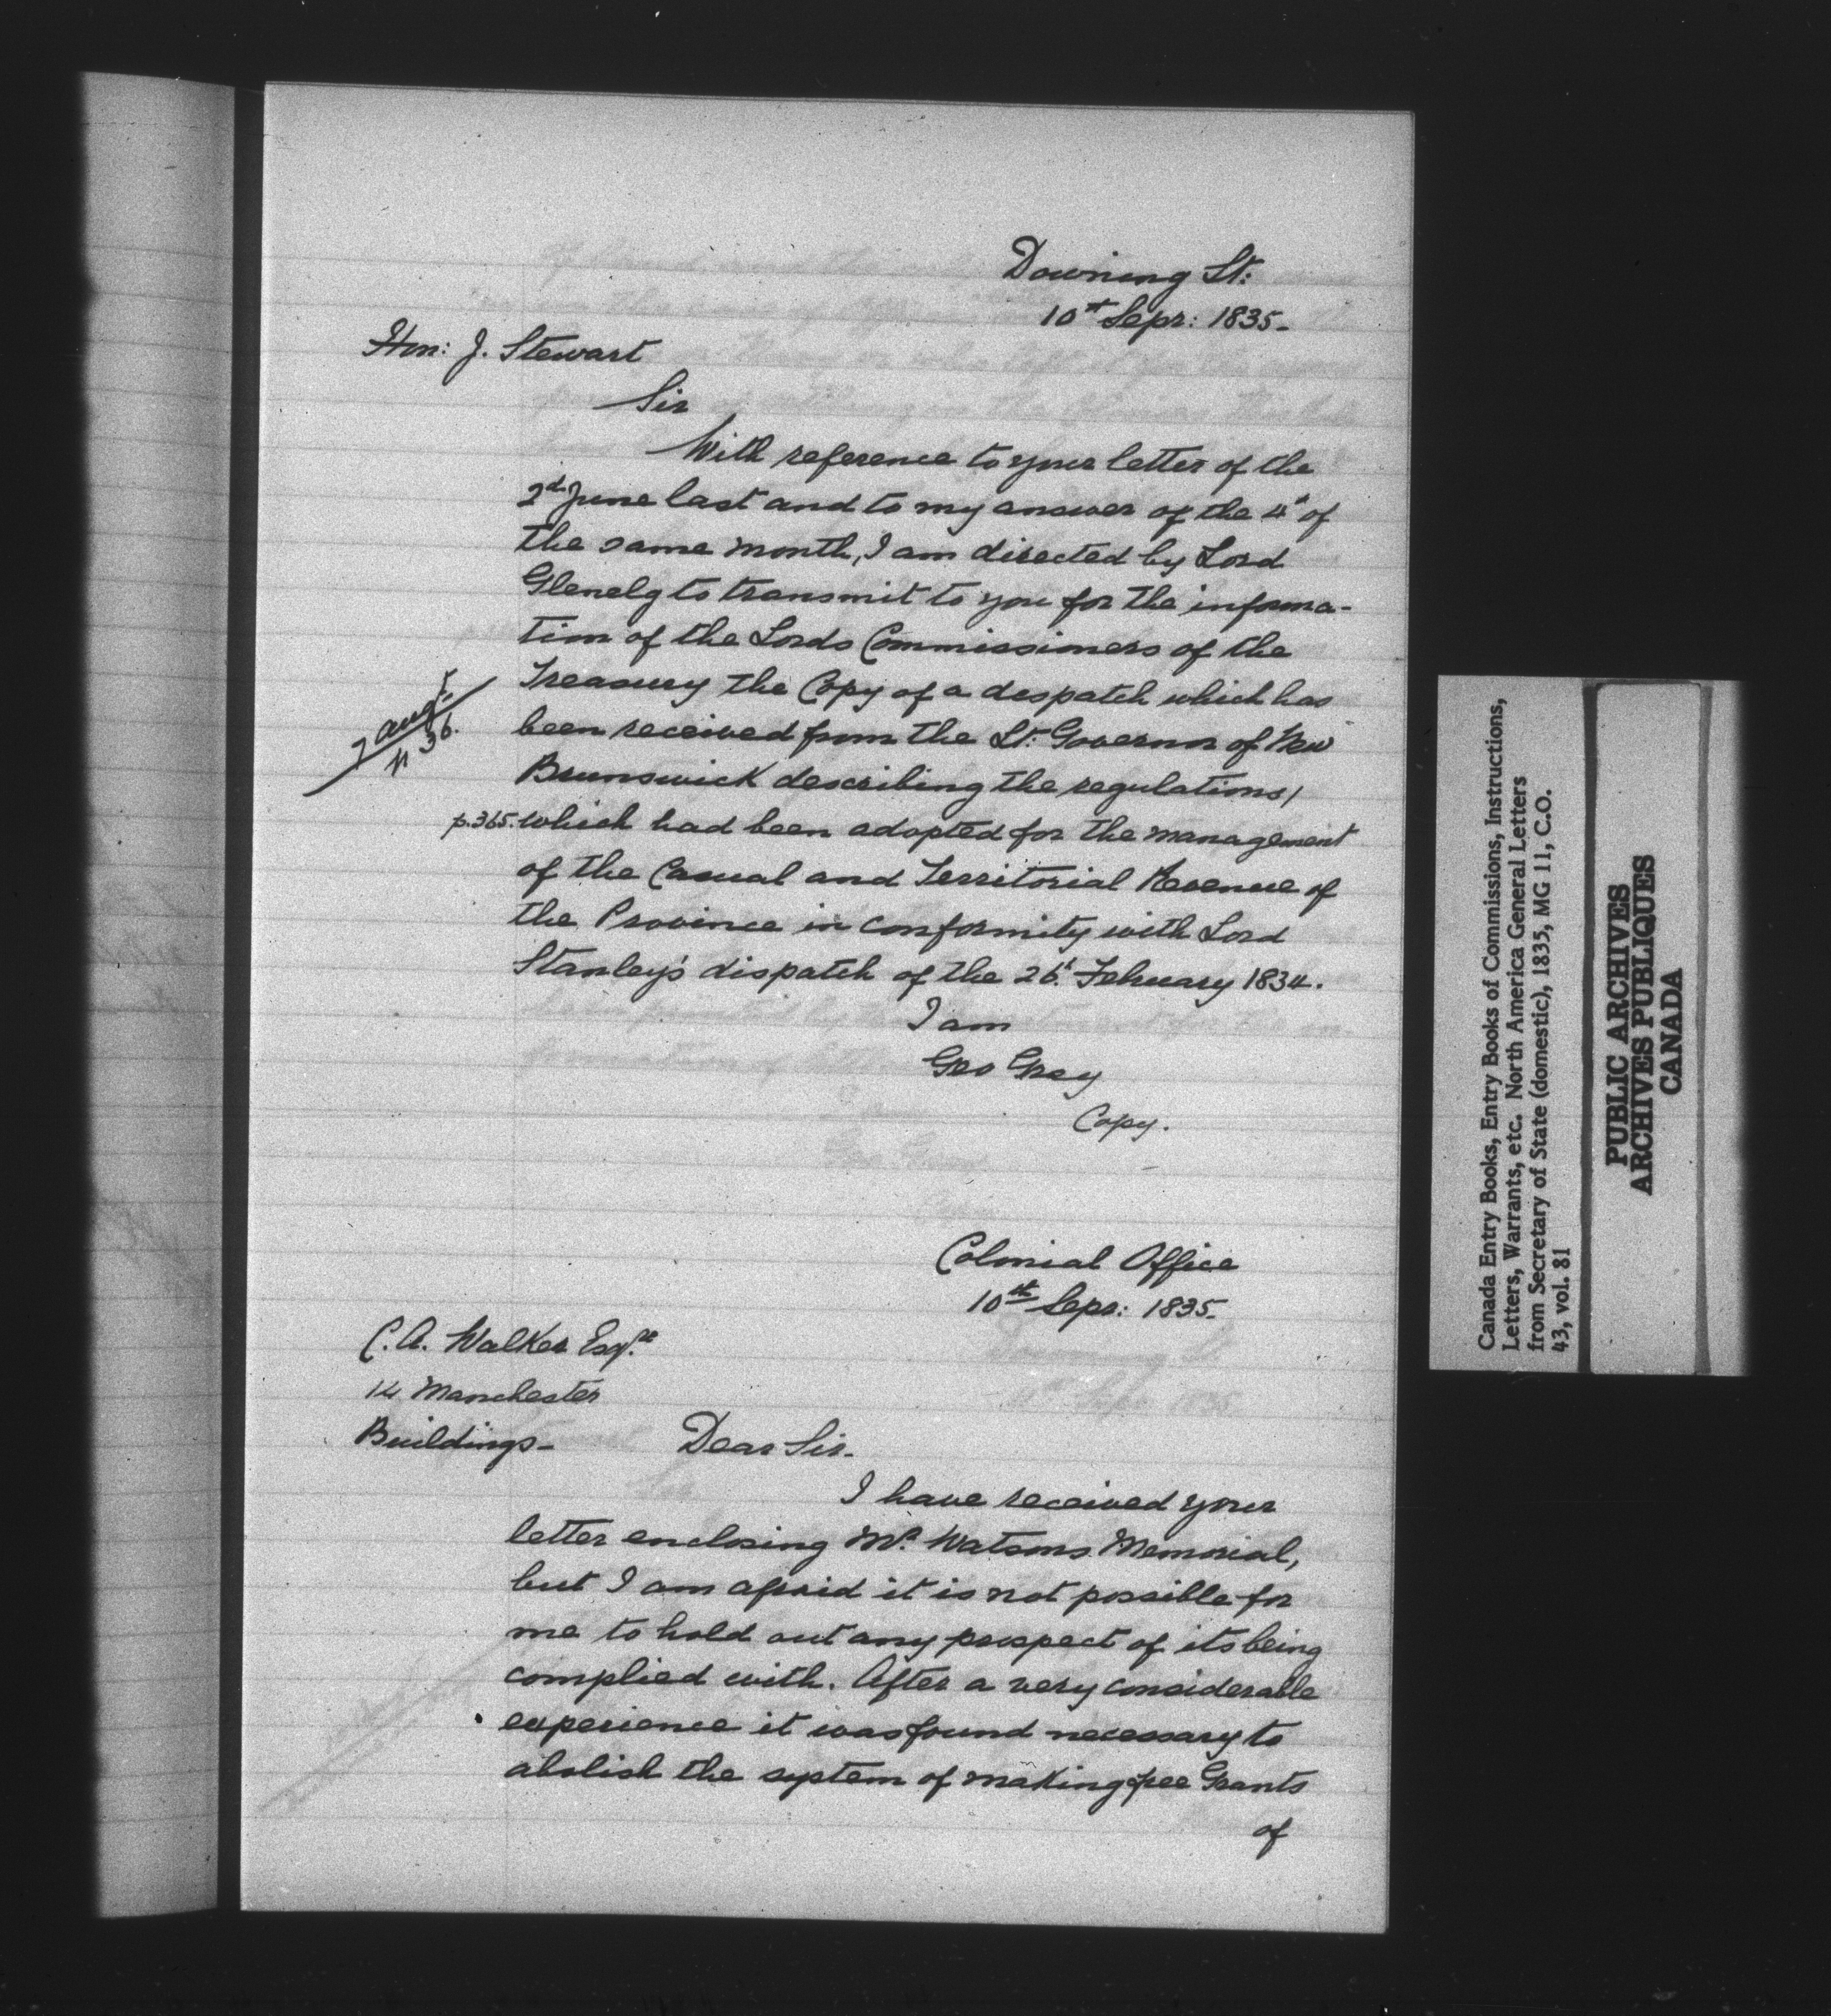 Downing St:
10th Sepr: 1835-
Hon: J. Stewart
Sir
With reference to your letter of the
2d June last and to my answer of the 4th of
the same month, I am directed by Lord
Glenelg to transmit to you for the informa-
tion of the Lords Commissioners of the
Treasury the Copy of a despatch which has
7 Augt
N 36.
been received from the Lt. Governor of New
Brunswick describing the regulations,
p.365. which had been adopted for the management
of the Casual and Territorial Revenue of
the Province in conformity with Lord
Stanley's dispatch of the 26t. February 1834.
I am
Geo Grey
Copy.
Colonial Office
10th Sepr: 1835.
C. A. Walker Esqre
14 Manchester
Buildings-
Dear Sir-
I have received your
letter enclosing Mr. Watsons Memorial,
but I am afraid it is not possible for
me to hold out any prospect of its being
complied with. After a very considerable
experience it was found necessary to
abolish the system of making free Grants
of
Canada Entry Books, Entry Books of Commissions, Instructions,
Letters, Warrants, etc. North America General Letters
from Secretary of State (domestic), 1835, MG 11, C.O.
43, vol. 81
PUBLIC ARCHIVES
ARCHIVES PUBLIQUES
CANADA